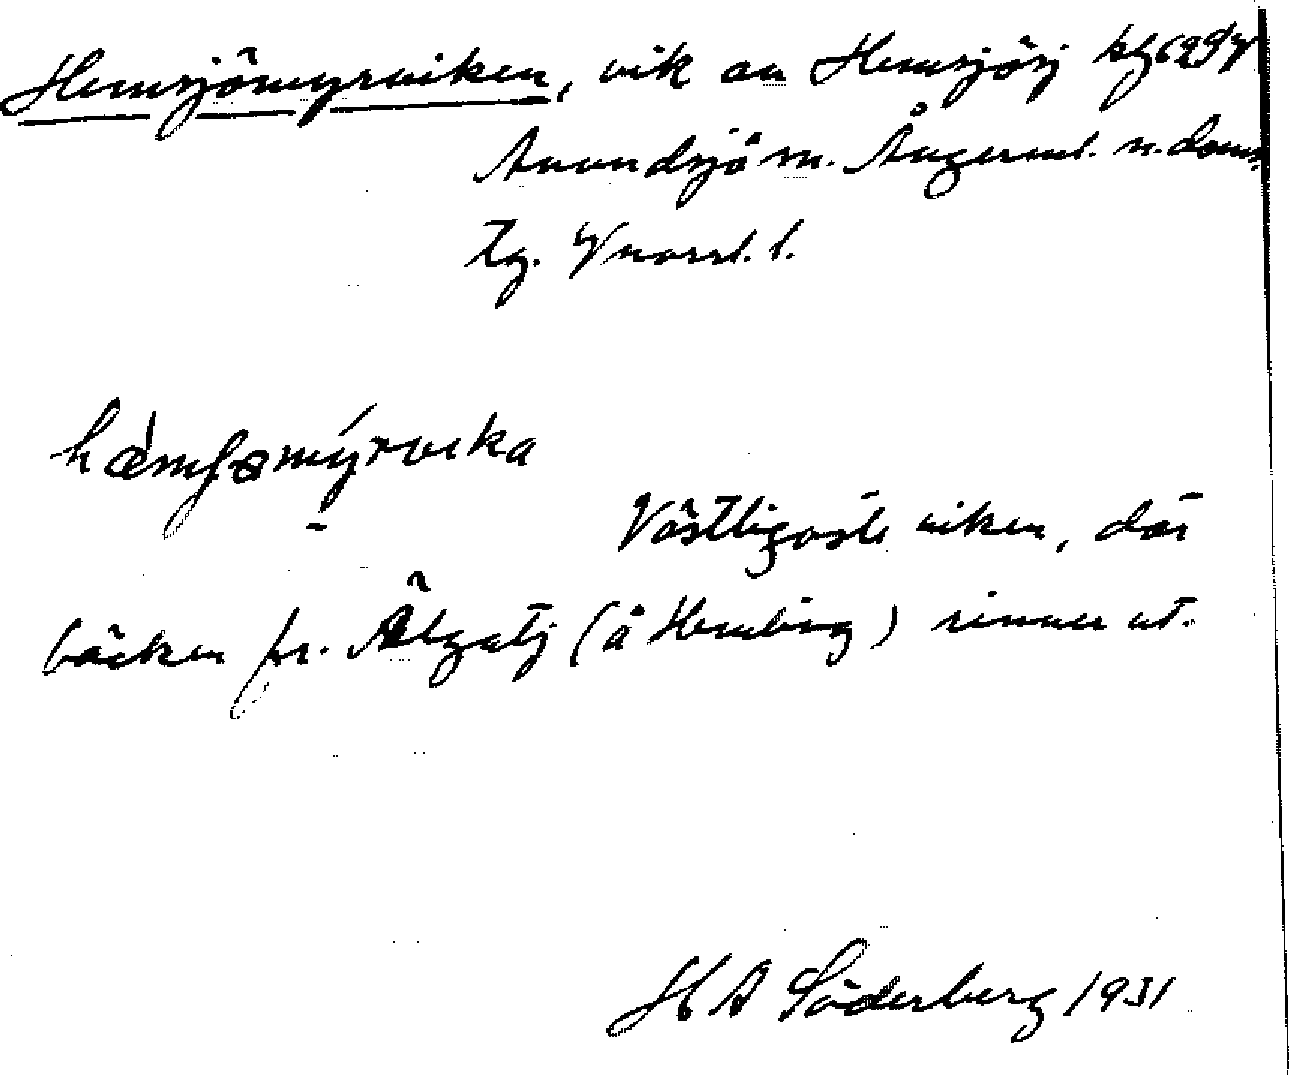 Hemsjömyrviken, vik av Hemsjösj
Anundsjö sn. Ångerml. n. doms.
tg. Vnorrl. l.
Västligaste viken, där
bäcken fr. Älgatj (å Hemberg) rinner ut.
H A Söderberg 1931